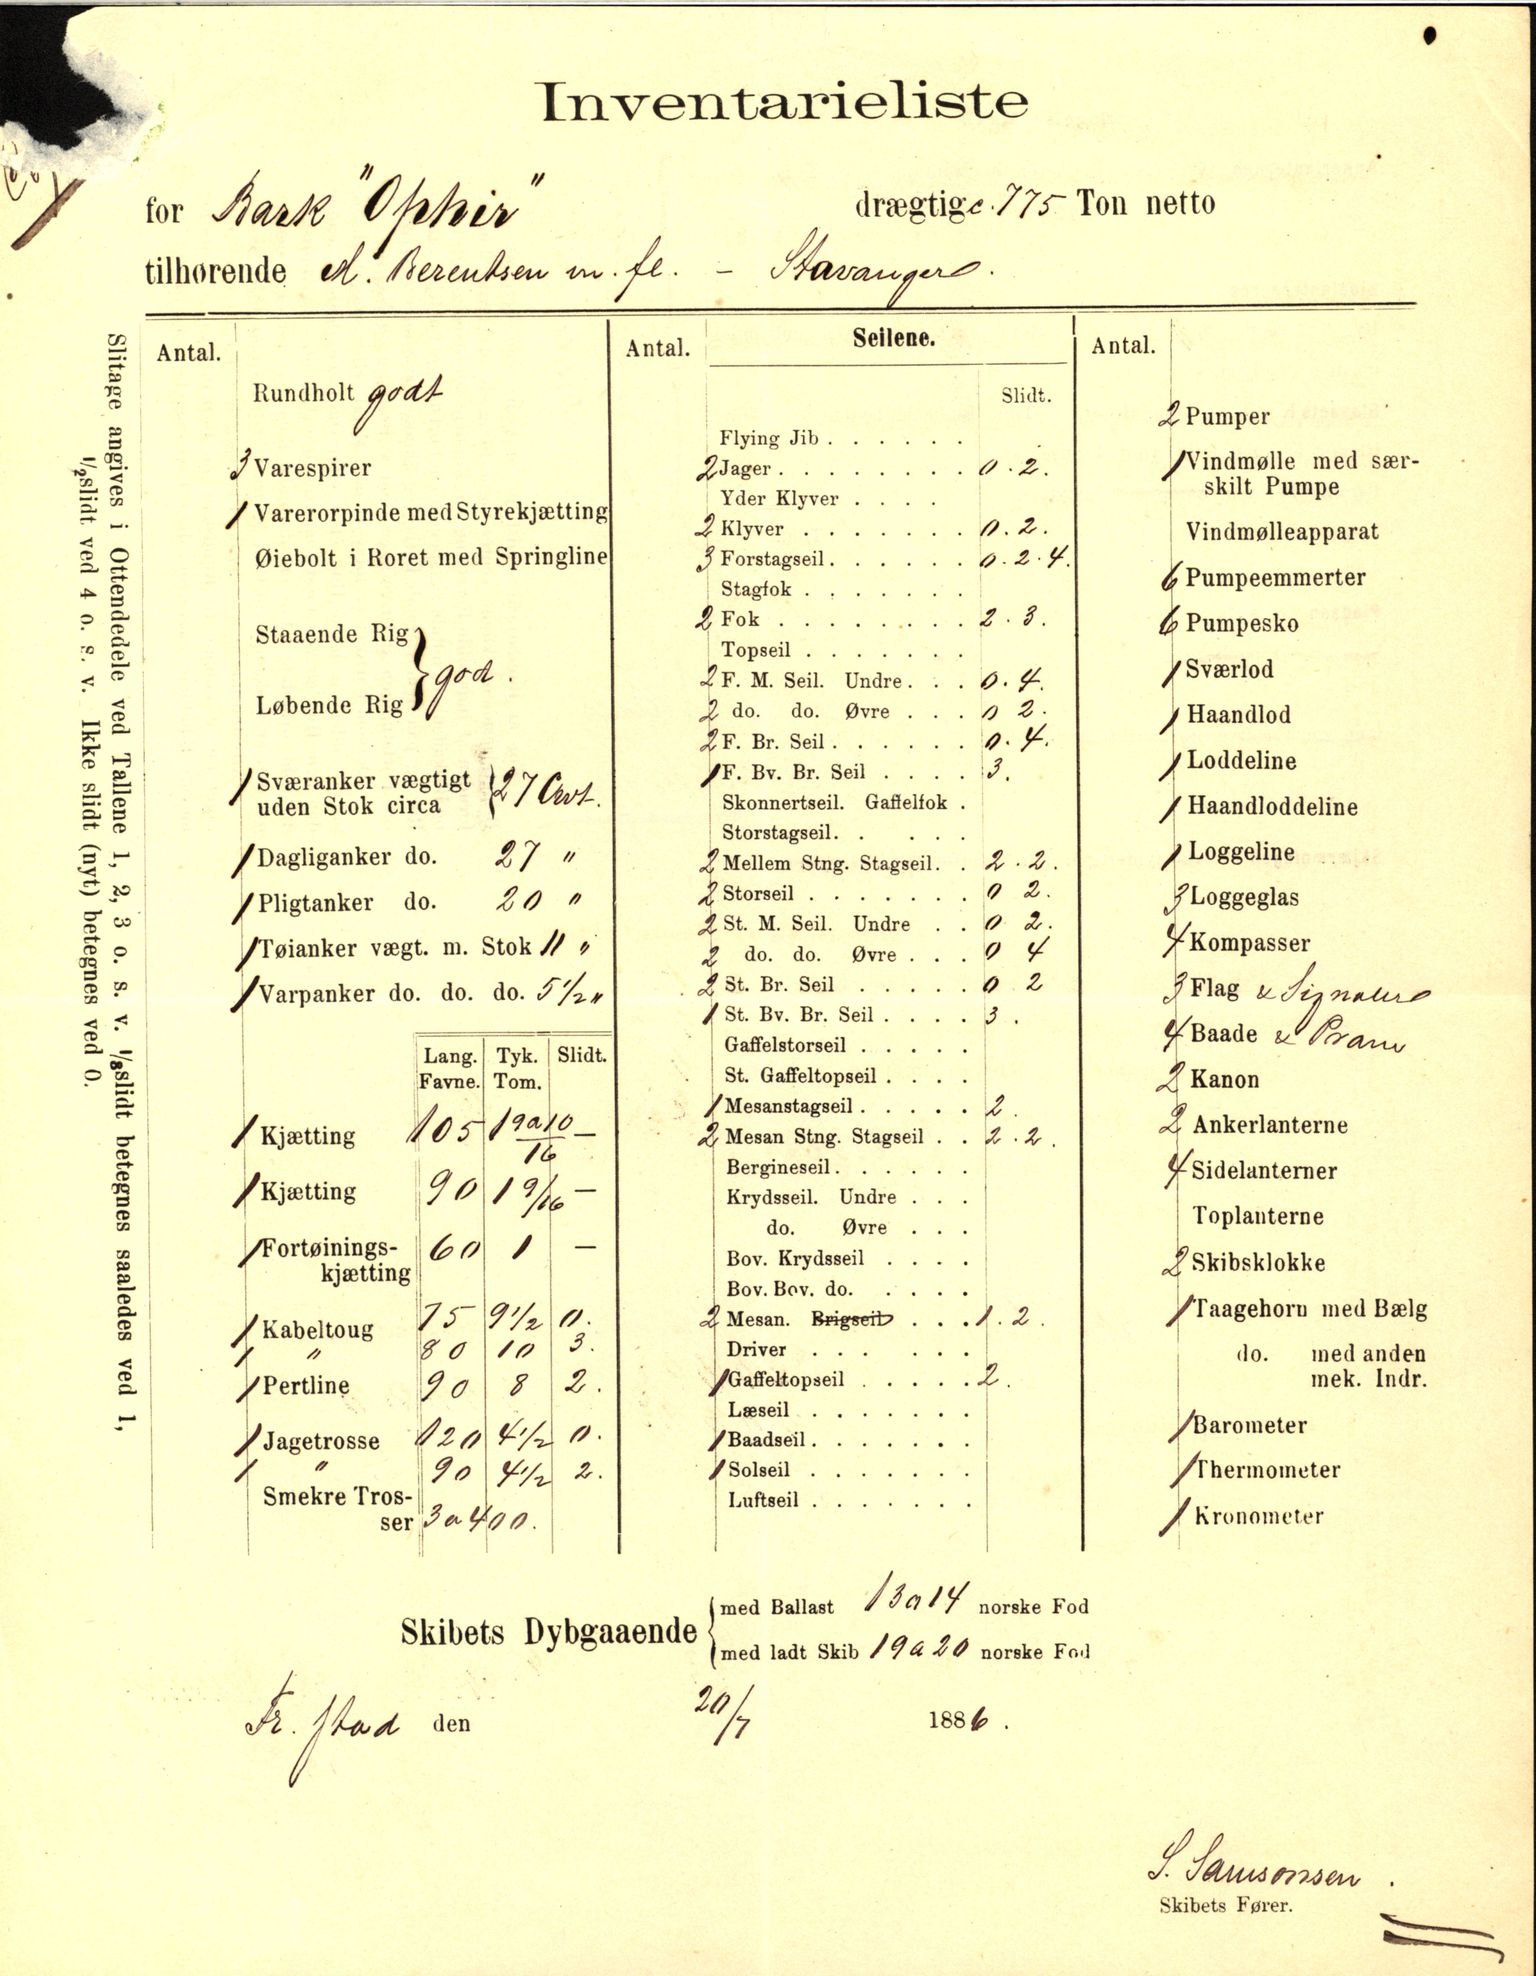 Inventarieliste
for Bark "Ophir" drægtig c. 775 Ton netto
tilhørende A. Berentsen m. fl. – Stavanger.
Slitage angives i Ottendedele ved Tallene 1, 2, 3 o. s. v. 1/8 slidt betegnes saaledes ved 1,
1/2 slidt ved 4 o. s. v. Ikke slidt (nyt) betegnes ved 0.
Antal.
Rundholt godt
3 Varespirer
1 Varerorpinde med Styrekjætting
Øiebolt i Roret med Springline
Staaende Rig
god.
Løbende Rig
1 Sværanker vægtigt
uden Stok circa 27 Cwt.
1 Dagliganker do. 27 "
1 Pligtanker do. 20 "
1 Tøianker vægt. m. Stok 11 "
1 Varpanker do. do. do. 5 1/2 "
Lang. Tyk. Slidt.
Favne. Tom.
1 Kjætting 105 1 9 a 10/16 –
1 Kjætting 90 1 9/16 –
1 Fortøinings-
kjætting 60 1 –
1 Kabeltoug 75 9 1/2 0.
1 " 80 10 3.
1 Pertline 90 8 2.
1 Jagetrosse 120 4 1/2 0.
1 " 90 4 1/2 2.
Smekre Tros-
ser 3 a 400.
Antal. Seilene.
Slidt.
Flying Jib . . . . . .
2 Jager . . . . . . . . 0. 2.
Yder Klyver . . . .
2 Klyver . . . . . . . 0. 2.
3 Forstagseil . . . . . . 0. 2. 4.
Stagfok . . . . . . .
2 Fok . . . . . . . . 2. 3.
Topseil . . . . . . .
2 F. M. Seil. Undre . . . 0. 4.
2 do. do. Øvre . . . 0 2.
2 F. Br. Seil . . . . . . 0. 4.
1 F. Bv. Br. Seil . . . . 3.
Skonnertseil. Gaffelfok .
Storstagseil . . . . .
2 Mellem Stng. Stagseil . . 2. 2.
2 Storseil . . . . . . . 0 2.
2 St. M. Seil. Undre . . 0 2.
2 do. do. Øvre . . . 0 4
2 St. Br. Seil . . . . . 0 2
1 St. Bv. Br. Seil . . . . 3.
Gaffelstorseil . . . . .
St. Gaffeltopseil . . . .
1 Mesanstagseil . . . . . 2.
2 Mesan Stng. Stagseil . . 2. 2.
Bergineseil . . . . . .
Krydsseil. Undre . . .
do. Øvre . . .
Bov. Krydsseil . . . .
Bov. Bov. do. . . . .
2 Mesan. Brigseil . . . 1. 2.
Driver . . . . . .
1 Gaffeltopseil . . . . . 2.
Læseil . . . . . . .
1 Baadseil . . . . . . .
1 Solseil . . . . . . .
Luftseil . . . . . . .
Antal.
2 Pumper
1 Vindmølle med sær-
skilt Pumpe
Vindmølleapparat
6 Pumpeemmerter
6 Pumpesko
1 Sværlod
1 Haandlod
1 Loddeline
1 Haandloddeline
1 Loggeline
3 Loggeglas
4 Kompasser
3 Flag & Signaler
4 Baade & Pram
2 Kanon
2 Ankerlanterne
4 Sidelanterner
Toplanterne
2 Skibsklokke
1 Taagehorn med Bælg
do. med anden
mek. Indr.
1 Barometer
1 Thermometer
1 Kronometer
Skibets Dybgaaende
med Ballast 13 a 14 norske Fod
med ladt Skib 19 a 20 norske Fod
Fr. stad den 20/7 1886.
S. Samsonsen.
Skibets Fører.